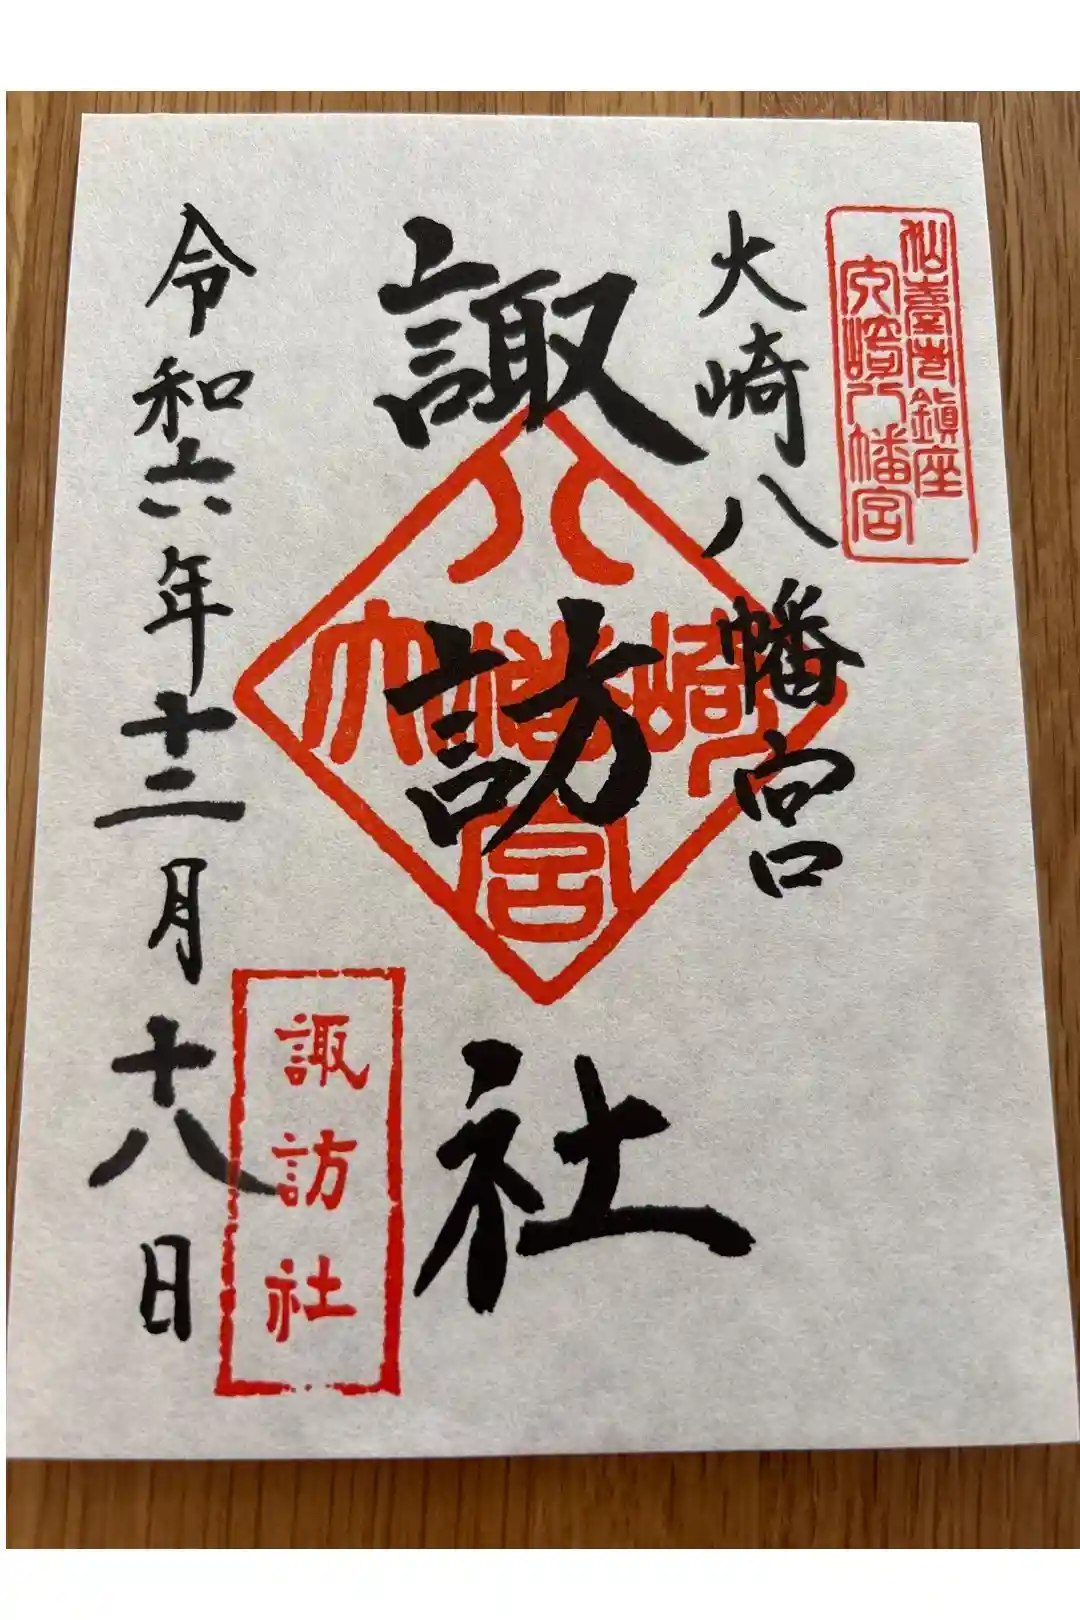 仙臺市鎮座
大崎八幡宮
大崎八幡宮
諏訪社
八幡宮
大崎
諏訪社
令和六年十二月十八日